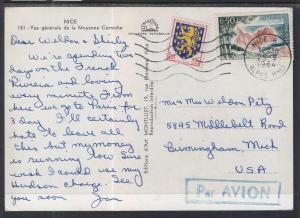 NICE
181 - Vue générale de la Moyenne Corniche
Dear Weldon & Shirley
We're spending two
days on the French
Riviera and loving
every minute. From
here we go to Paris for
3 day. I'll certainly
hate to leave all
this but my money
is running low. Sure
wish I could use my
Hudson charge. See
you soon Jan
Editions d'Art MONTLUET
0,50
NICE
1964
Mr & Mrs Weldon Petz
5845 Middlebelt Road
Birmingham, Mich
U.S.A.
Par AVION